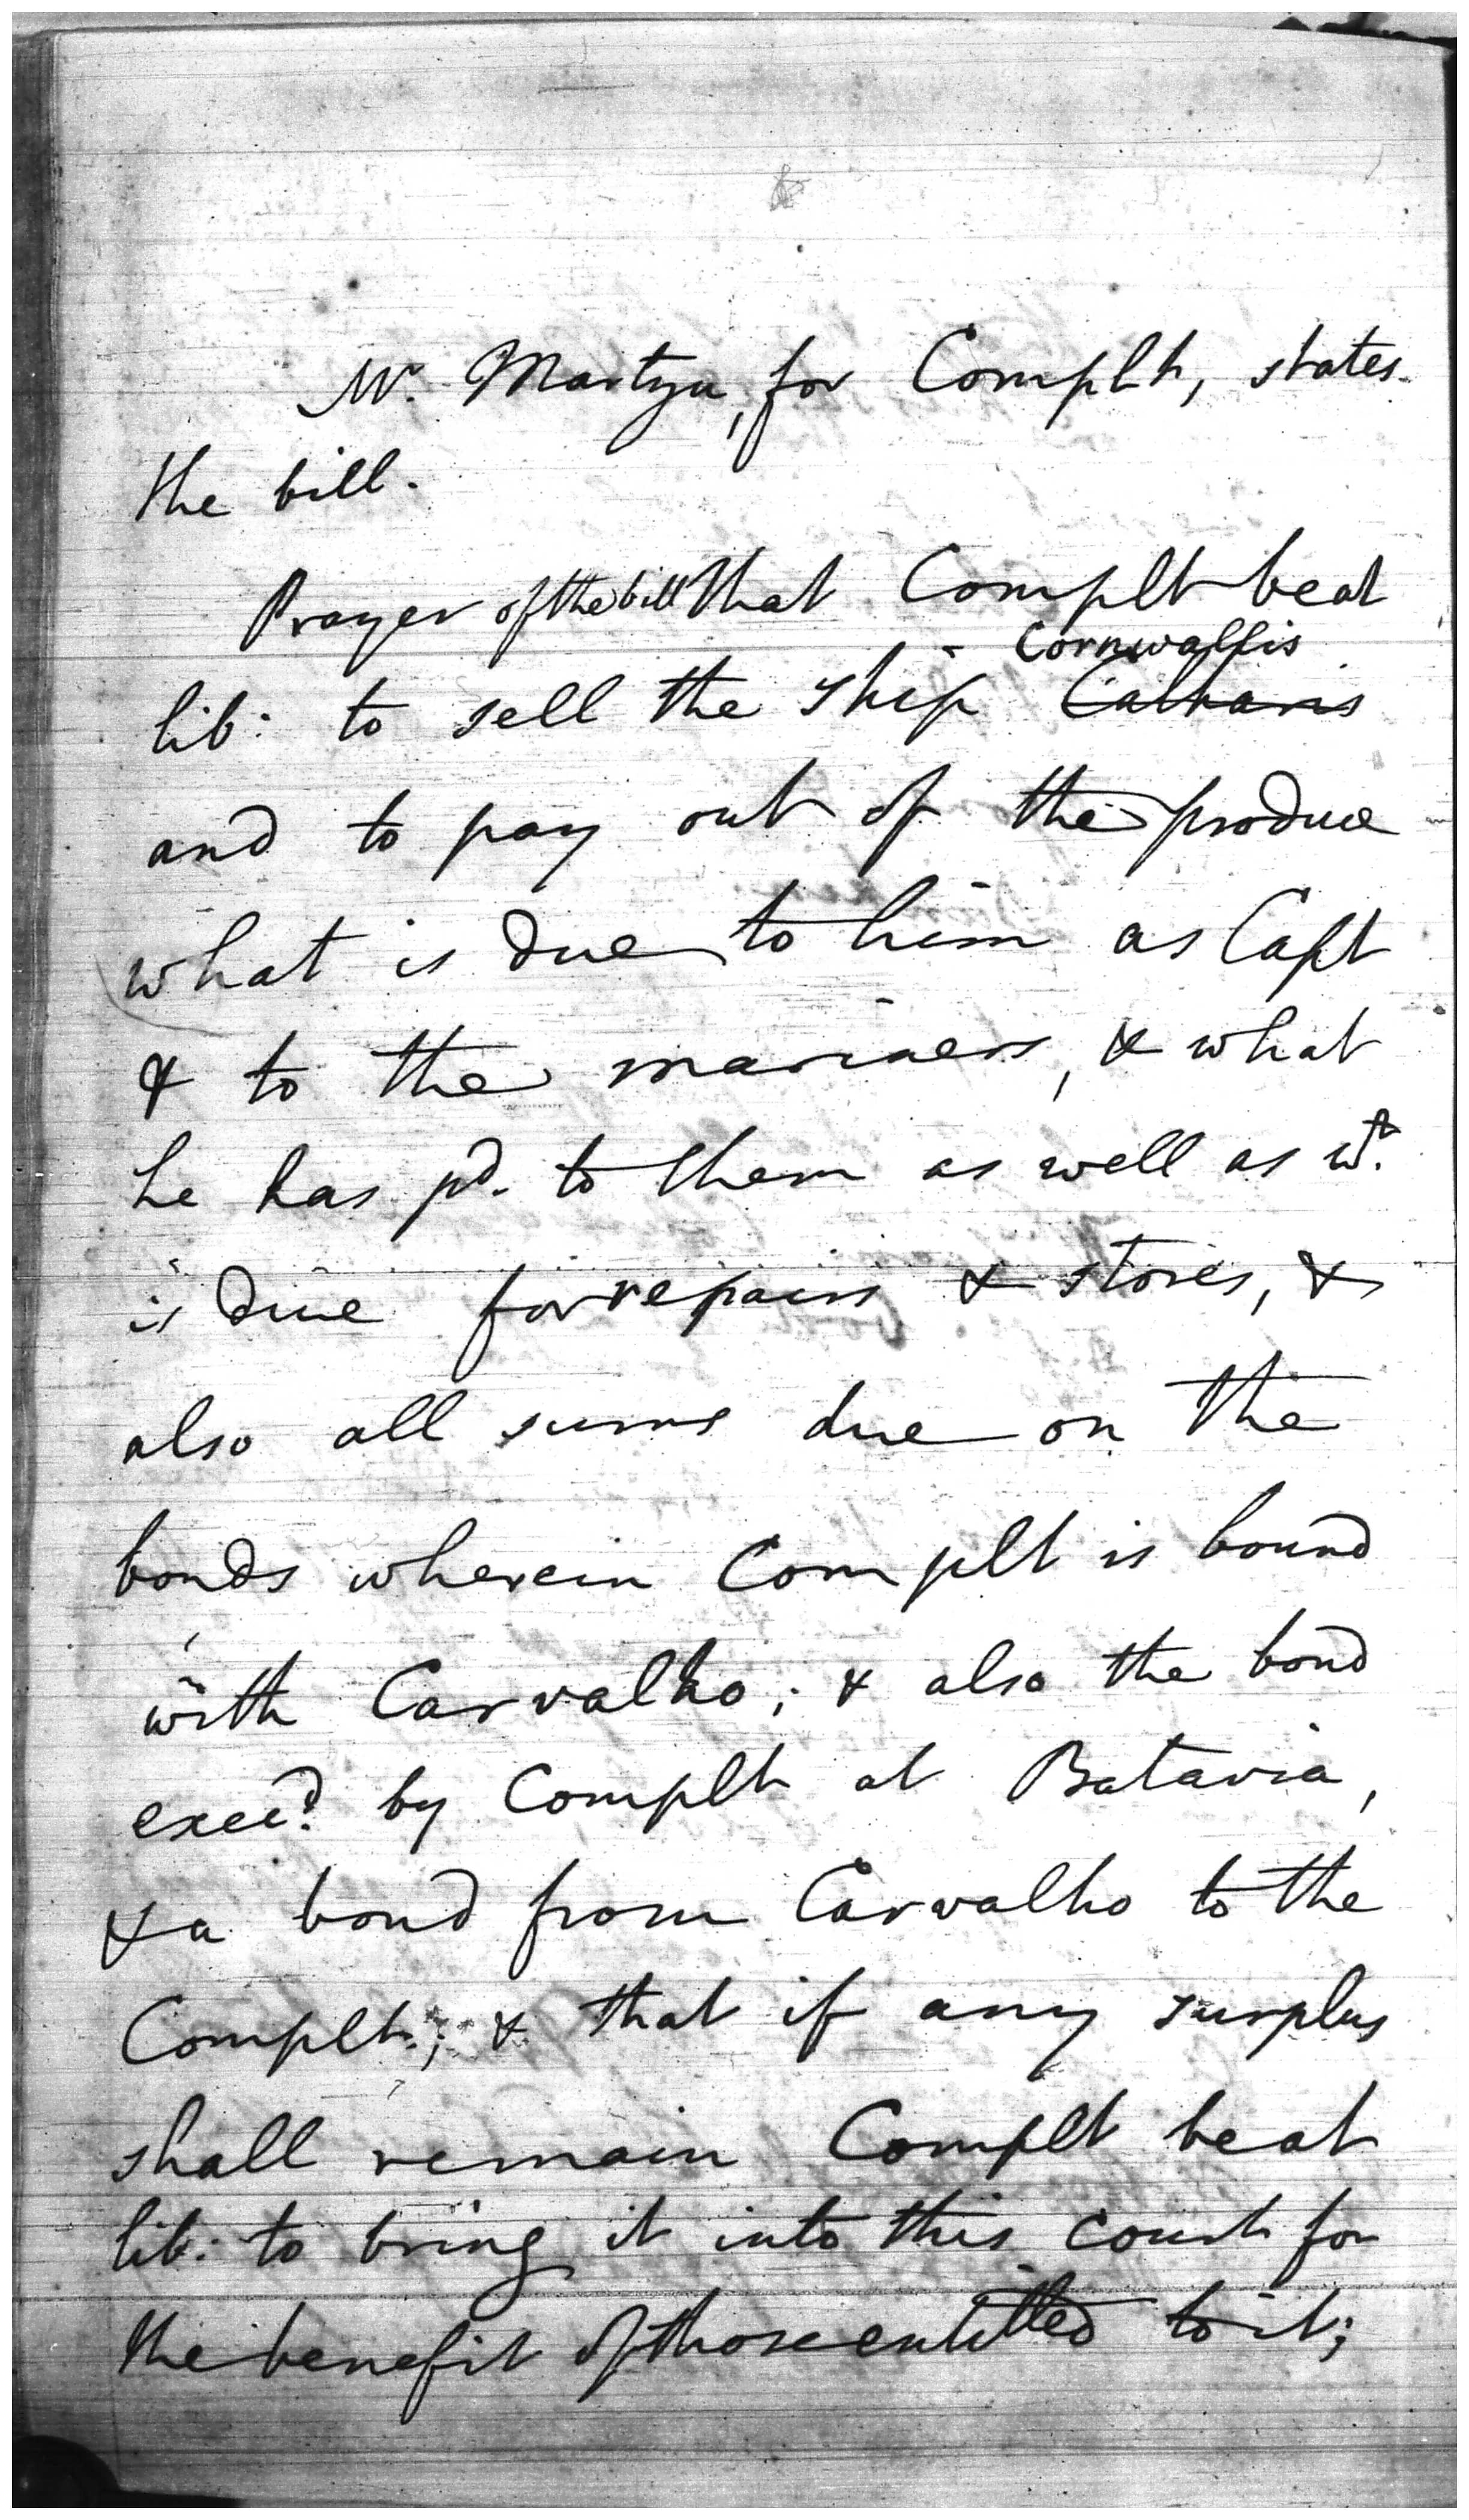 Mr. Martyn, for Complt, states
the bill.
Prayer of the bill that Complt be at
Cornwallis
lib: to sell the ship
and to pay out of the produce
what is due to him as Capt
& to the mariners, & what
he has pd. to them as well as wt.
is due for repairs & stores, &
also all sums due on the
bonds wherein Complt is bound
with Carvalho; & also the bond
exec'd. by Complt at Batavia,
& a bond from Carvalho to the
Complt; & that if any surplus
shall remain Complt be at
lib: to bring it into this court for
the benefit of those entitled to it;